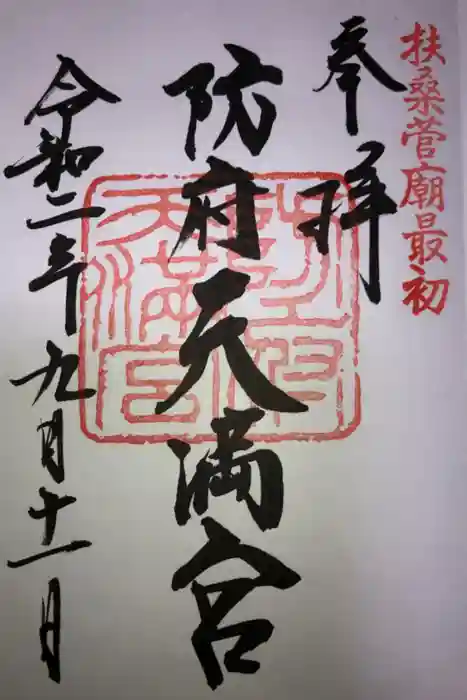 扶桑菅廟最初
奉拝
防府天満宮
令和二年九月十一日